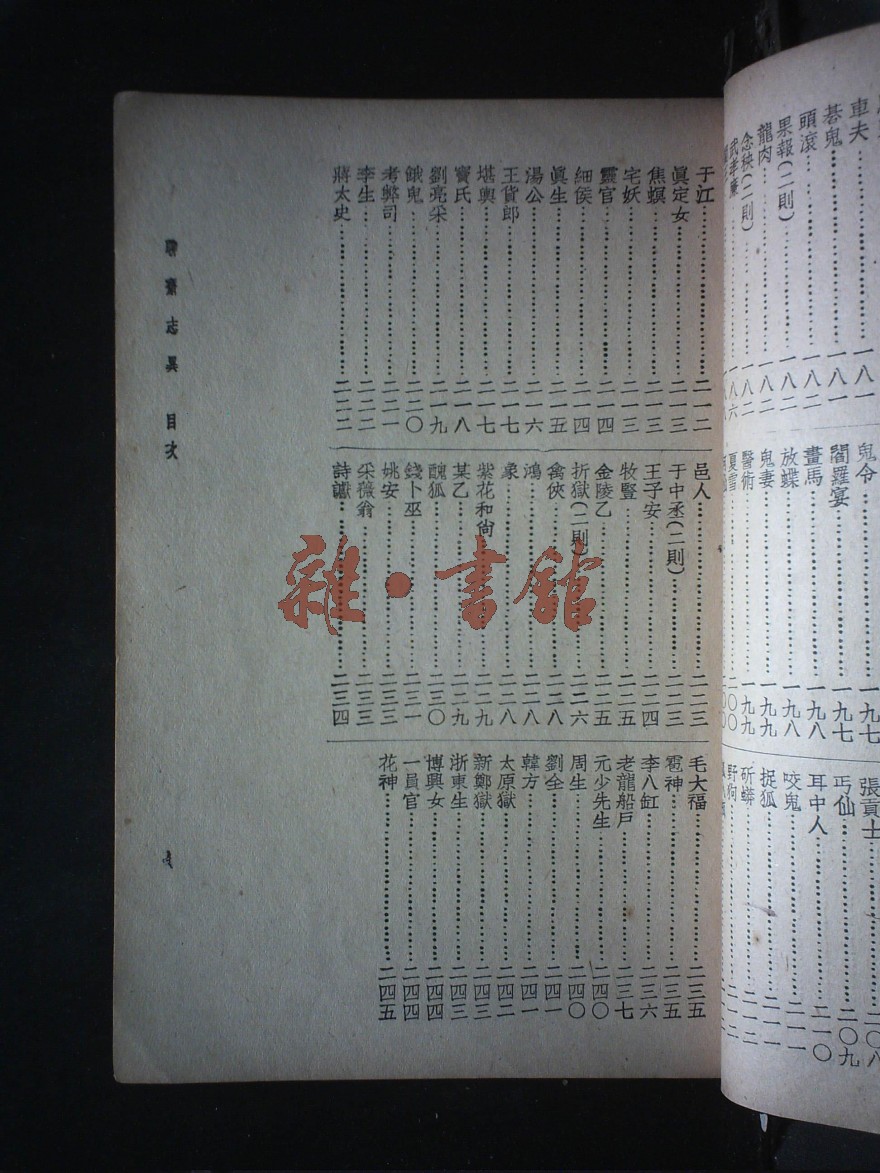 車夫……一八一
碁鬼……一八一
頭滾……一八二
果報(二則)……一八二
龍肉……一八二
念秧(二則)……一八二
武孝廉……一八六
鬼令……一九七
閻羅宴……一九七
畫馬……一九八
放蝶……一九八
鬼妻……一九九
醫術……一九九
夏雪……二〇〇
張貢士……二〇八
丐仙……二〇九
耳中人……二一〇
咬鬼……二一一
捉狐……二一一
斫蟒……二一二
野狗……二一二
于江……二一二
眞定女……二一三
焦螟……二一三
宅妖……二一三
靈官……二一四
細侯……二一四
眞生……二一五
湯公……二一六
王貨郎……二一七
堪輿……二一七
竇氏……二一八
劉亮采……二一九
餓鬼……二二〇
考弊司……二二一
李生……二二二
蔣太史……二二二
邑人……二二三
于中丞(二則)……二二三
王子安……二二四
牧豎……二二五
金陵乙……二二五
折獄(二則)……二二六
禽俠……二二八
鴻……二二八
象……二二八
紫花和尙……二二九
某乙……二二九
醜狐……二三〇
錢卜巫……二三一
姚安……二三二
采薇翁……二三三
詩讞……二三四
毛大福……二三五
雹神……二三五
李八缸……二三六
老龍船戶……二三七
元少先生……二四〇
周生……二四〇
劉全……二四一
韓方……二四一
太原獄……二四二
新鄭獄……二四三
浙東生……二四三
博興女……二四四
一員官……二四四
花神……二四五
聊齋志異 目次
雜·書館